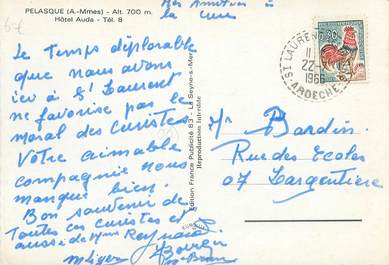 PELASQUE (A.-Mmes) - Alt. 700 m.
Hôtel Auda - Tél. 8
Mes Amitiés à
la cure
Le temps déplorable
que nous avons
ici à St Laurent
ne favorise pas le
moral des curistes
Votre aimable
compagnie nous
manque bien.
Bon souvenir de
Toutes ces curistes et
aussi de Mme Reynaud
Edition France Publicité 83 - La Seyne-s.-Mer
Reproduction Interdite
ST LAURENT
22-
1966
ARDECHE
Mr Bardin
Rue des Ecoles
07 Largentière